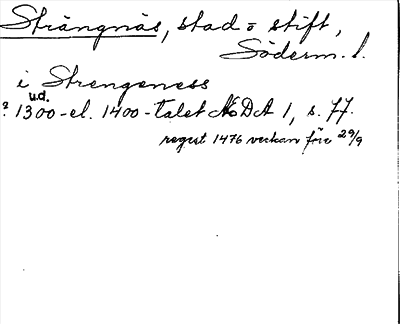 Strängnäs, stad o stift,
Söderm. l.
i Strengeness
u.d.
? 1300-el. 1400-talet NoDA 1, s. 77.
regest 1476 veckan före 29/9